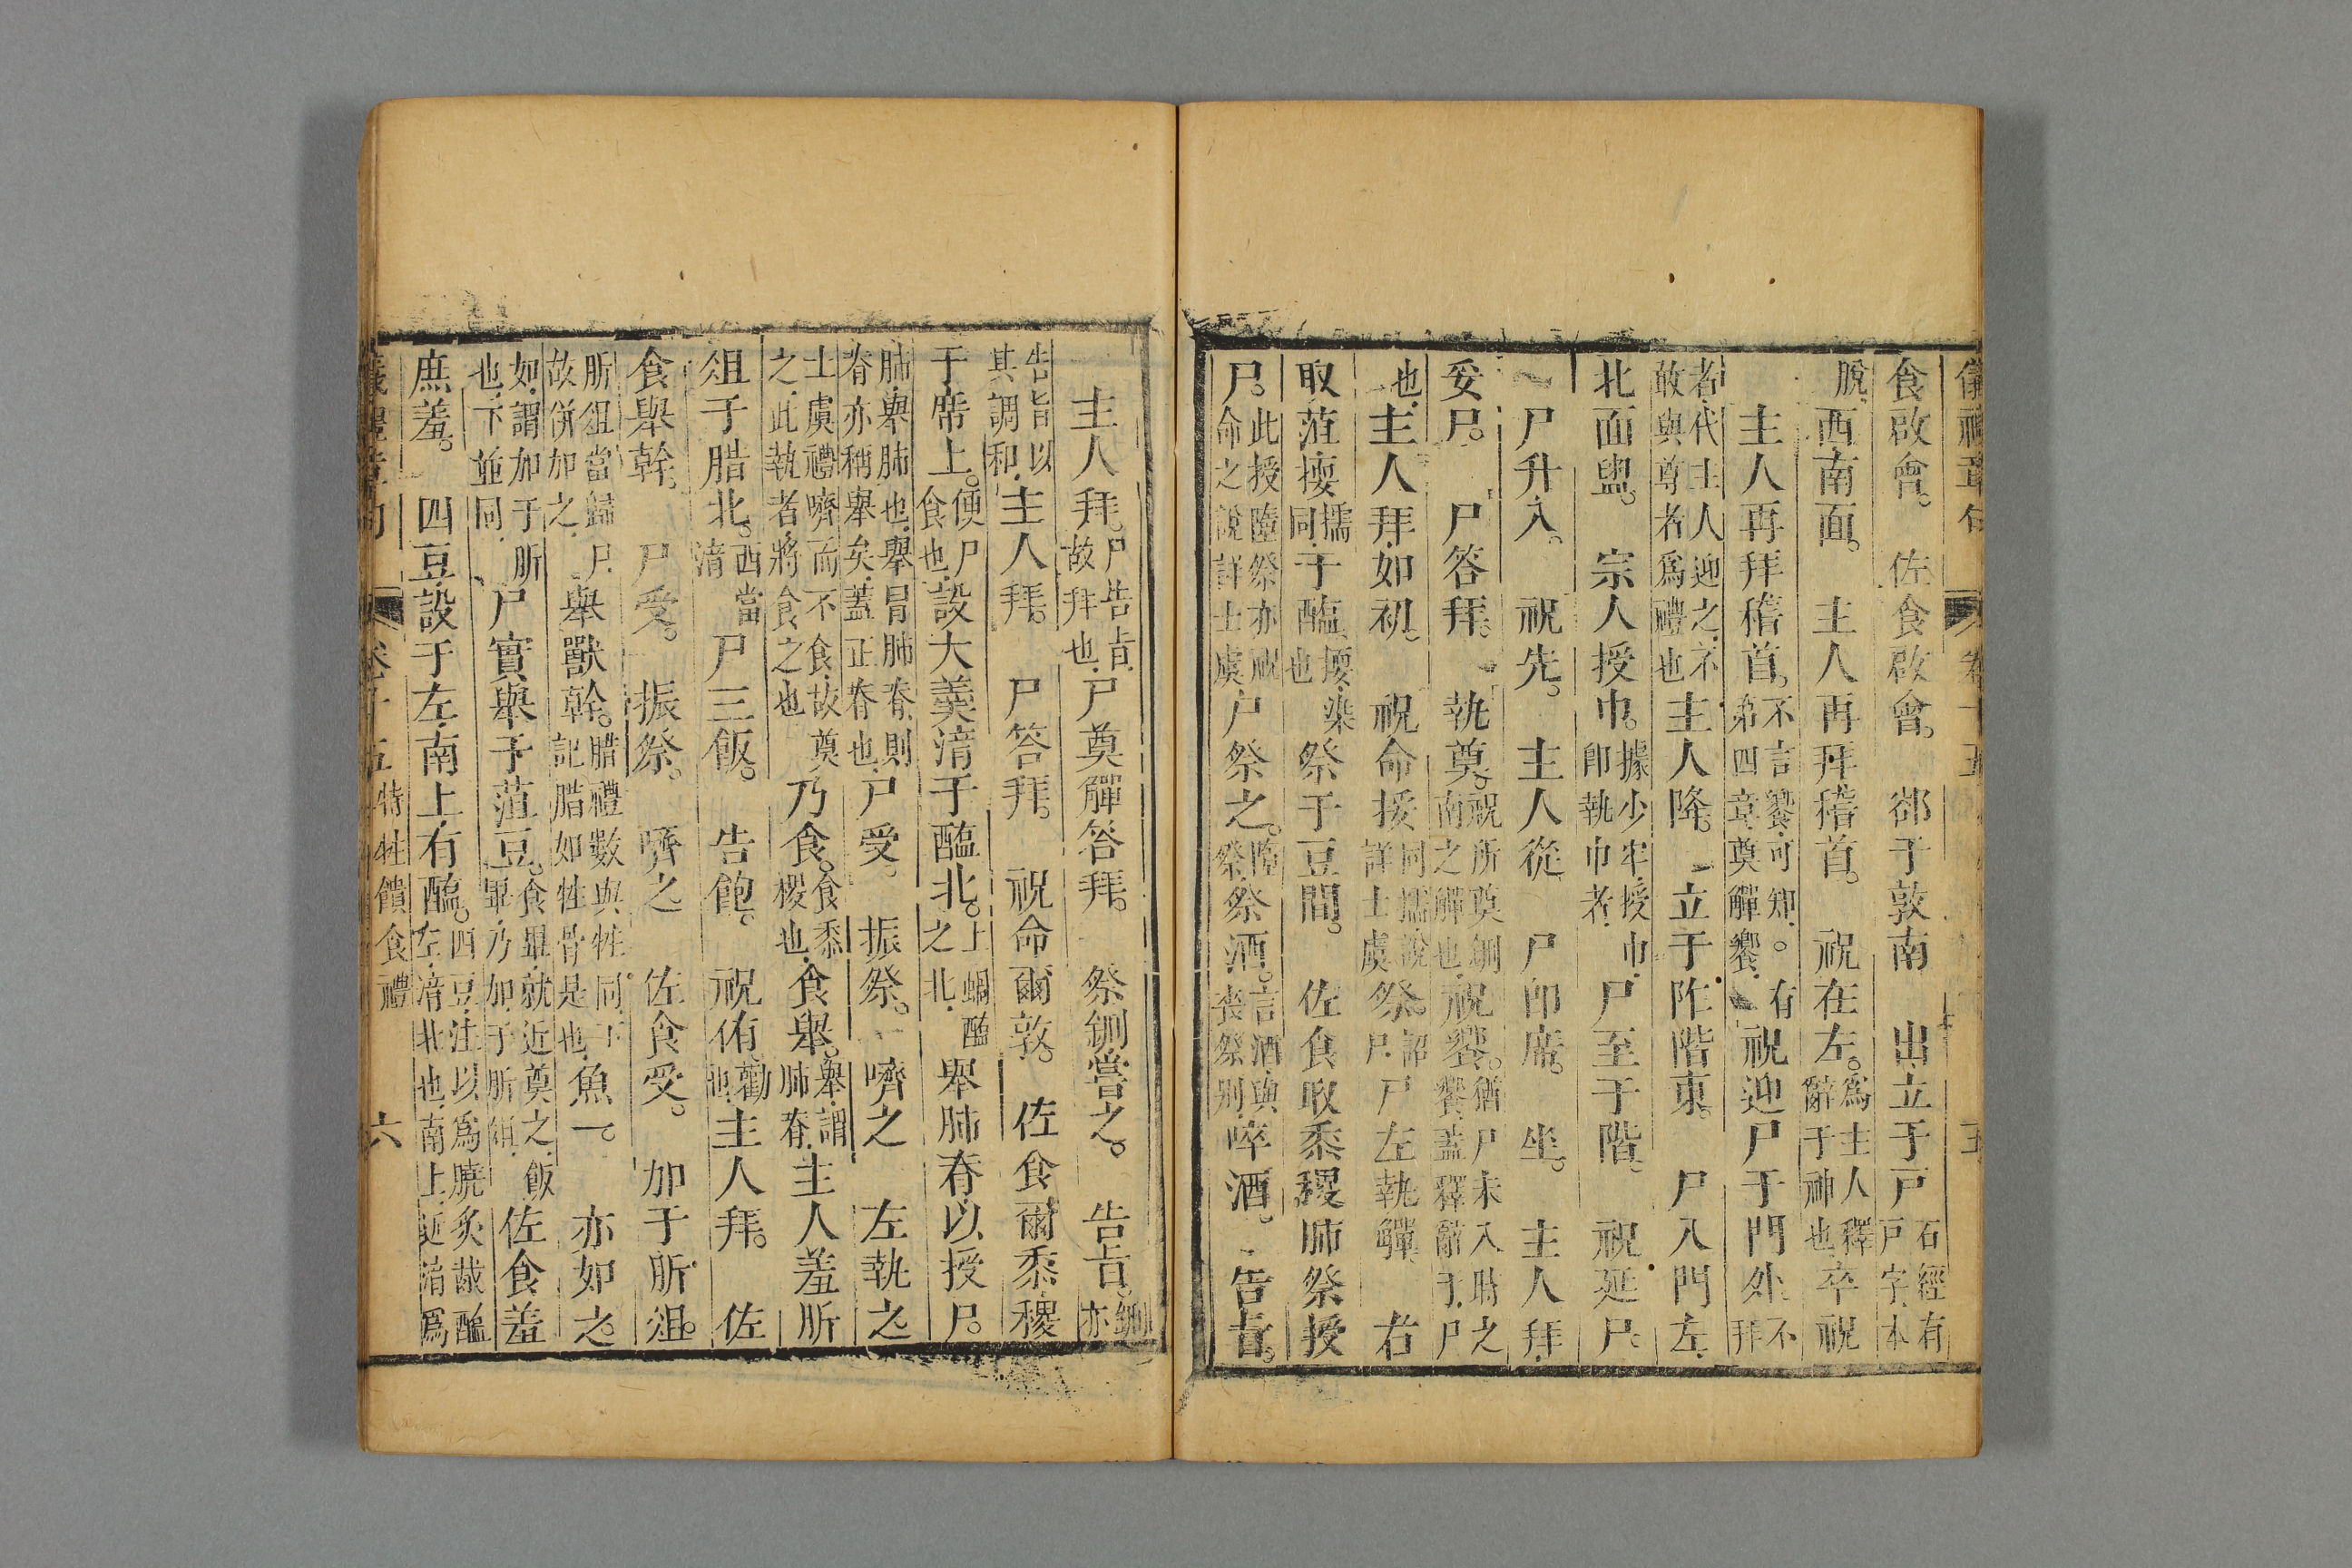 儀禮章句 卷十五 五
食啟會。佐食啟會。郤于敦南 出立于戸石經有戸字本
脫西南面。主人再拜稽首。祝在左。為主人釋辭于神也卒祝
主人再拜稽首。不言饗可知。有弟四章奠觶饗祝迎尸于門外不拜
者代主人迎之不敢與尊者為禮也主人降。立于阼階東。尸入門左
北面盥。宗人授巾。據少牢授巾即執巾者尸至于階。祝延尸
尸升入。祝先。主人從 尸即席。坐。主人拜
妥尸。尸答拜。執奠。祝所奠鉶南之觶也祝饗。猶尸未入時之饗蓋釋辭于尸
也主人拜如初。祝命挼同擩說詳士虞祭。詔尸尸左執觶 右
取菹㨎擩同于醢㨎染也祭于豆間。佐食取黍稷肺祭授
尸。此授隋祭亦祝命之說詳士虞尸祭之。隋祭祭酒。言酒與喪祭別啐酒。告旨。
主人拜。尸告旨故拜也尸奠觶答拜。祭鉶嘗之。告旨。鉶亦
告旨以其調和主人拜。尸答拜。祝命爾敦。佐食爾黍稷
于席上。便尸食也設大羹湇于醢北。上蝸醢之北舉肺脊以授尸。
肺舉肺也舉冐肺脊則脊亦稱舉矣蓋正脊也尸受。振祭。嚌之 左執之
士虞禮嚌而不食故奠之此執者將食之也乃食。食黍稷也食舉。舉謂肺脊主人羞肵
俎于腊北。西當湇尸三飯。告飽。祝侑勸也主人拜。佐
食舉幹。尸受。振祭。嚌之 佐食受。加于肵俎。
肵俎當歸尸故併加之舉獸幹。腊禮數與牲同下記腊如牲骨是也魚一。亦如之。
如謂加于肵也下並同尸實舉于菹豆。食畢就近奠之飯畢乃加于肵俎佐食羞
庶羞。四豆設于左南上有醢。四豆注以為膮炙胾醢左湇北也南上近湇為
儀禮章句 卷十五特牲饋食禮 六